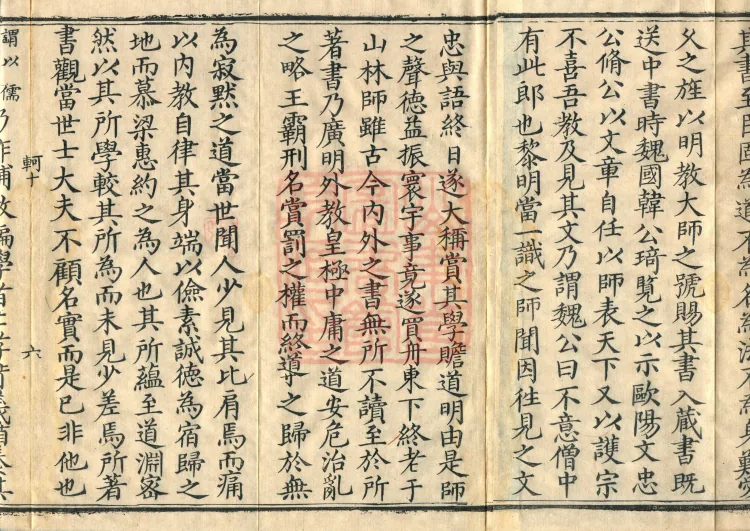 其書至臣固為道不為名為法不為身
久之旌以明教大師之號賜其書入藏書既
送中書時魏國韓公琦覧之以示歐陽文忠
公脩公以文章自任以師表天下又以護宗
不喜吾教及見其文乃謂魏公曰不意僧中
有此郎也黎明當一識之師聞因往見之文
忠與語終日遂大稱賞其學贍道明由是師
之聲德益振寰宇事竟遂買舟東下終老于
山林師雖古今内外之書無所不讀至於所
著書乃廣明外教皇極中庸之道安危治亂
之略王霸刑名賞罰之權而終導之歸於無
為寂默之道當世聞人少見其比肩焉而痛
以内教自律其身端以儉素誠德為宿歸之
地而慕梁惠約之為人也其所藴至道淵密
然以其所學較其所為而未見少差焉所著
書觀當世士大夫不顧名實而是已非他也
軻十 六
謂以儒乃作輔教編學者士